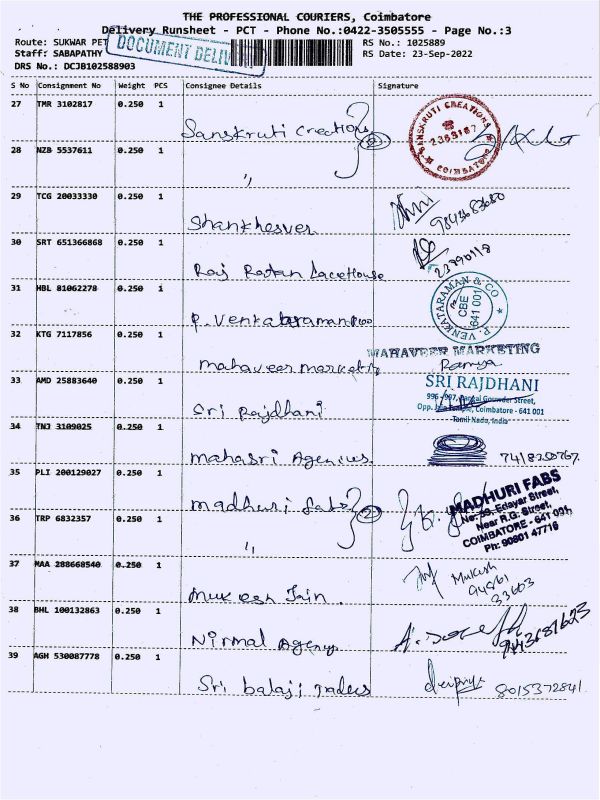 THE PROFESSIONAL COURIERS, Coimbatore
Delivery Runsheet - PCT - Phone No.:0422-3505555 - Page No.:3
Route: SUKWAR PET
DOCUMENT DELI
RS No.: 1025889
Staff: SABAPATHY
RS Date: 23-Sep-2022
DRS No.: DCJB102588903
S No Consignment No Weight PCS Consignee Details Signature
27 TMR 3102817 0.250 1
Sanskruti Creations 2
SANSKRUTI CREATIONS COIMBATORE
28 NZB 5537611 0.250 1
"
29 TCG 20033330 0.250 1
Shankhesver
30 SRT 651366868 0.250 1
Raj Ratan Lace House
31 HBL 81062278 0.250 1
P. Venkataraman & Co
P. VENKATARAMAN & CO
CBE
641 001
32 KTG 7117856 0.250 1
Mahaveer Marketing
MAHAVEER MARKETING
Ramya
33 AMD 25883640 0.250 1
Sri Rajdhani
SRI RAJDHANI
Street,
Opp. Temple, Coimbatore - 641 001
Tamil Nadu, India
34 TNJ 3109025 0.250 1
Mahasri Agencies
35 PLI 200129027 0.250 1
Madhuri fabs 2
MADHURI FABS
Edayar Street,
Near R.G. Street,
COIMBATORE - 641 001
Ph: 90801 47716
36 TRP 6832357 0.250 1
"
37 MAA 288668540 0.250 1
Mukesh Jain.
Mukesh
94861
33603
38 BHL 100132863 0.250 1
Nirmal Agency
9443687623
39 AGH 530087778 0.250 1
Sri balaji Traders
8015372841